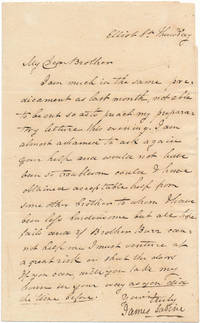 Elliot St Thursday
My Dear Brother
I am much in the same pre-
dicament as last month, not able
to be out so as to preach my prepara-
tory lecture this evening. I am
almost ashamed to ask again
your help and would not have
been so troublesome could I have
obtained acceptable help from
some other brother to whom I have
been less burdensome but all
fails and if Brother can-
not help me I must venture at
a great risk or shut the doors
If you can, will you take my
house in your way as you did
the time before.
Yours truly
James Sabine